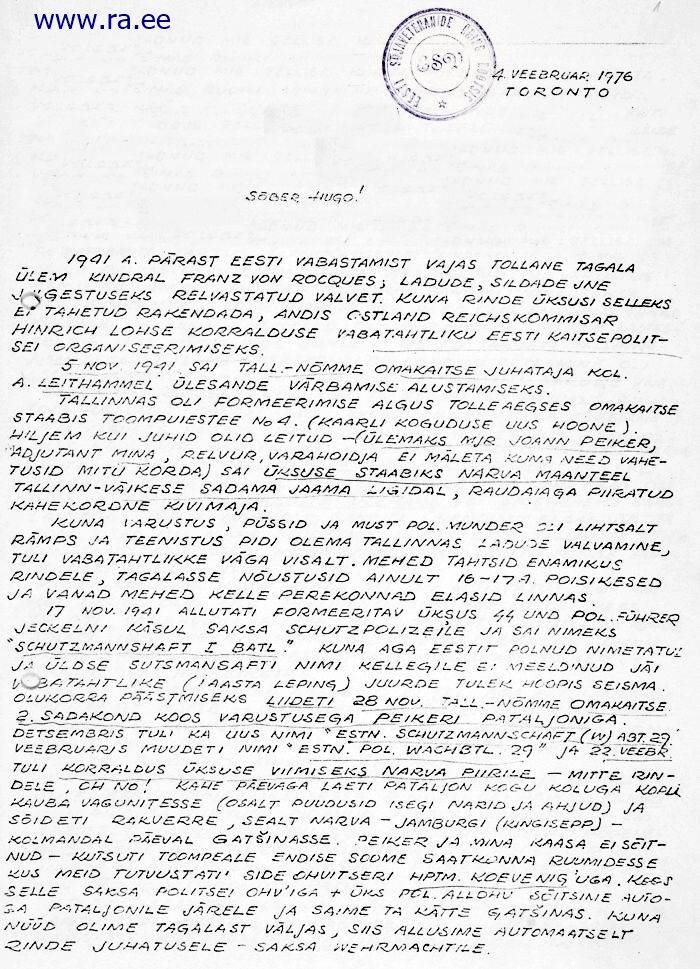 www.ra.ee
1
EESTI SÕJAVETERANIDE ÜHING ROOTSIS
ESV
4. VEEBRUAR 1976
TORONTO
SÕBER HUGO!
1941 A. PÄRAST EESTI VABASTAMIST VAJAS TOLLANE TAGALA
ÜLEM KINDRAL FRANZ VON ROCQUES; LADUDE, SILDADE JNE
JULGESTUSEKS RELVASTATUD VALVET. KUNA RINDE ÜKSUSI SELLEKS
EI TAHETUD RAKENDADA, ANDIS OSTLAND REICHSKOMMISAR
HINRICH LOHSE KORRALDUSE VABATAHTLIKU EESTI KAITSEPOLIT-
SEI ORGANISEERIMISEKS.
5 NOV. 1941 SAI TALL.-NÕMME OMAKAITSE JUHATAJA KOL.
A. LEITHAMMEL ÜLESANDE VÄRBAMISE ALUSTAMISEKS.
TALLINNAS OLI FORMEERIMISE ALGUS TOLLEAEGSES OMAKAITSE
STAABIS TOOMPUIESTEE No 4. (KAARLI KOGUDUSE UUS HOONE).
HILJEM KUI JUHID OLID LEITUD – (ÜLEMAKS MJR JOANN PEIKER,
ADJUTANT MINA, RELVUR, VARAHOIDJA EI MÄLETA KUNA NEED VAHE-
TUSID MITU KORDA) SAI ÜKSUSE STAABIKS NARVA MAANTEEL
TALLINN-VÄIKESE SADAMA JAAMA LIGIDAL, RAUDAIAGA PIIRATUD
KAHEKORDNE KIVIMAJA.
KUNA VARUSTUS, PÜSSID JA MUST POL. MUNDER OLI LIHTSALT
RÄMPS JA TEENISTUS PIDI OLEMA TALLINNAS LADUDE VALVAMINE,
TULI VABATAHTLIKKE VÄGA VISALT. MEHED TAHTSID ENAMIKUS
RINDELE, TAGALASSE NÕUSTUSID AINULT 16-17 A. POISIKESED
JA VANAD MEHED KELLE PEREKONNAD ELASID LINNAS.
17 NOV. 1941 ALLUTATI FORMEERITAV ÜKSUS SS UND POL. FÜHRER
JECKELNI KÄSUL SAKSA SCHUTZPOLIZEILE JA SAI NIMEKS
"SCHUTZMANNSHAFT I BATL." KUNA AGA EESTIT POLNUD NIMETATUD
JA ÜLDSE SUTSMANSAFTI NIMI KELLEGILE EI MEELDINUD JÄI
VABATAHTLIKE (1 AASTA LEPING) JUURDE TULEK HOOPIS SEISMA.
OLUKORRA PÄÄSTMISEKS LIIDETI 28 NOV. TALL.-NÕMME OMAKAITSE
2. SADAKOND KOOS VARUSTUSEGA PEIKERI PATALJONIGA.
DETSEMBRIS TULI KA UUS NIMI "ESTN. SCHUTZMANNSCHAFT (W) ABT. 29"
VEEBRUARIS MUUDETI NIMI "ESTN. POL. WACHBTL. 29" JA 22. VEEBR.
TULI KORRALDUS ÜKSUSE VIIMISEKS NARVA PIIRILE – MITTE RIN-
DELE, OH NO! KAHE PÄEVAGA LAETI PATALJON KOGU KOLUGA KOPLI
KAUBA VAGUNITESSE (OSALT PUUDUSID ISEGI NARID JA AHJUD) JA
SÕIDETI RAKVERRE, SEALT NARVA – JAMBURGI (KINGISEPP) –
KOLMANDAL PÄEVAL GATŠINASSE. PEIKER JA MINA KAASA EI SÕIT-
NUD – KUTSUTI TOOMPEALE ENDISE SOOME SAATKONNA RUUMIDESSE
KUS MEID TUTVUSTATI SIDE OHVITSERI HPTM. KOEVENIG'UGA. KOOS
SELLE SAKSA POLITSEI OHV'IGA + ÜKS POL. ALLOHV SÕITSIME AUTO-
GA PATALJONILE JÄRELE JA SAIME TA KÄTTE GATŠINAS. KUNA
NÜÜD OLIME TAGALAST VÄLJAS, SIIS ALLUSIME AUTOMAATSELT
RINDE JUHATUSELE – SAKSA WEHRMACHTILE.